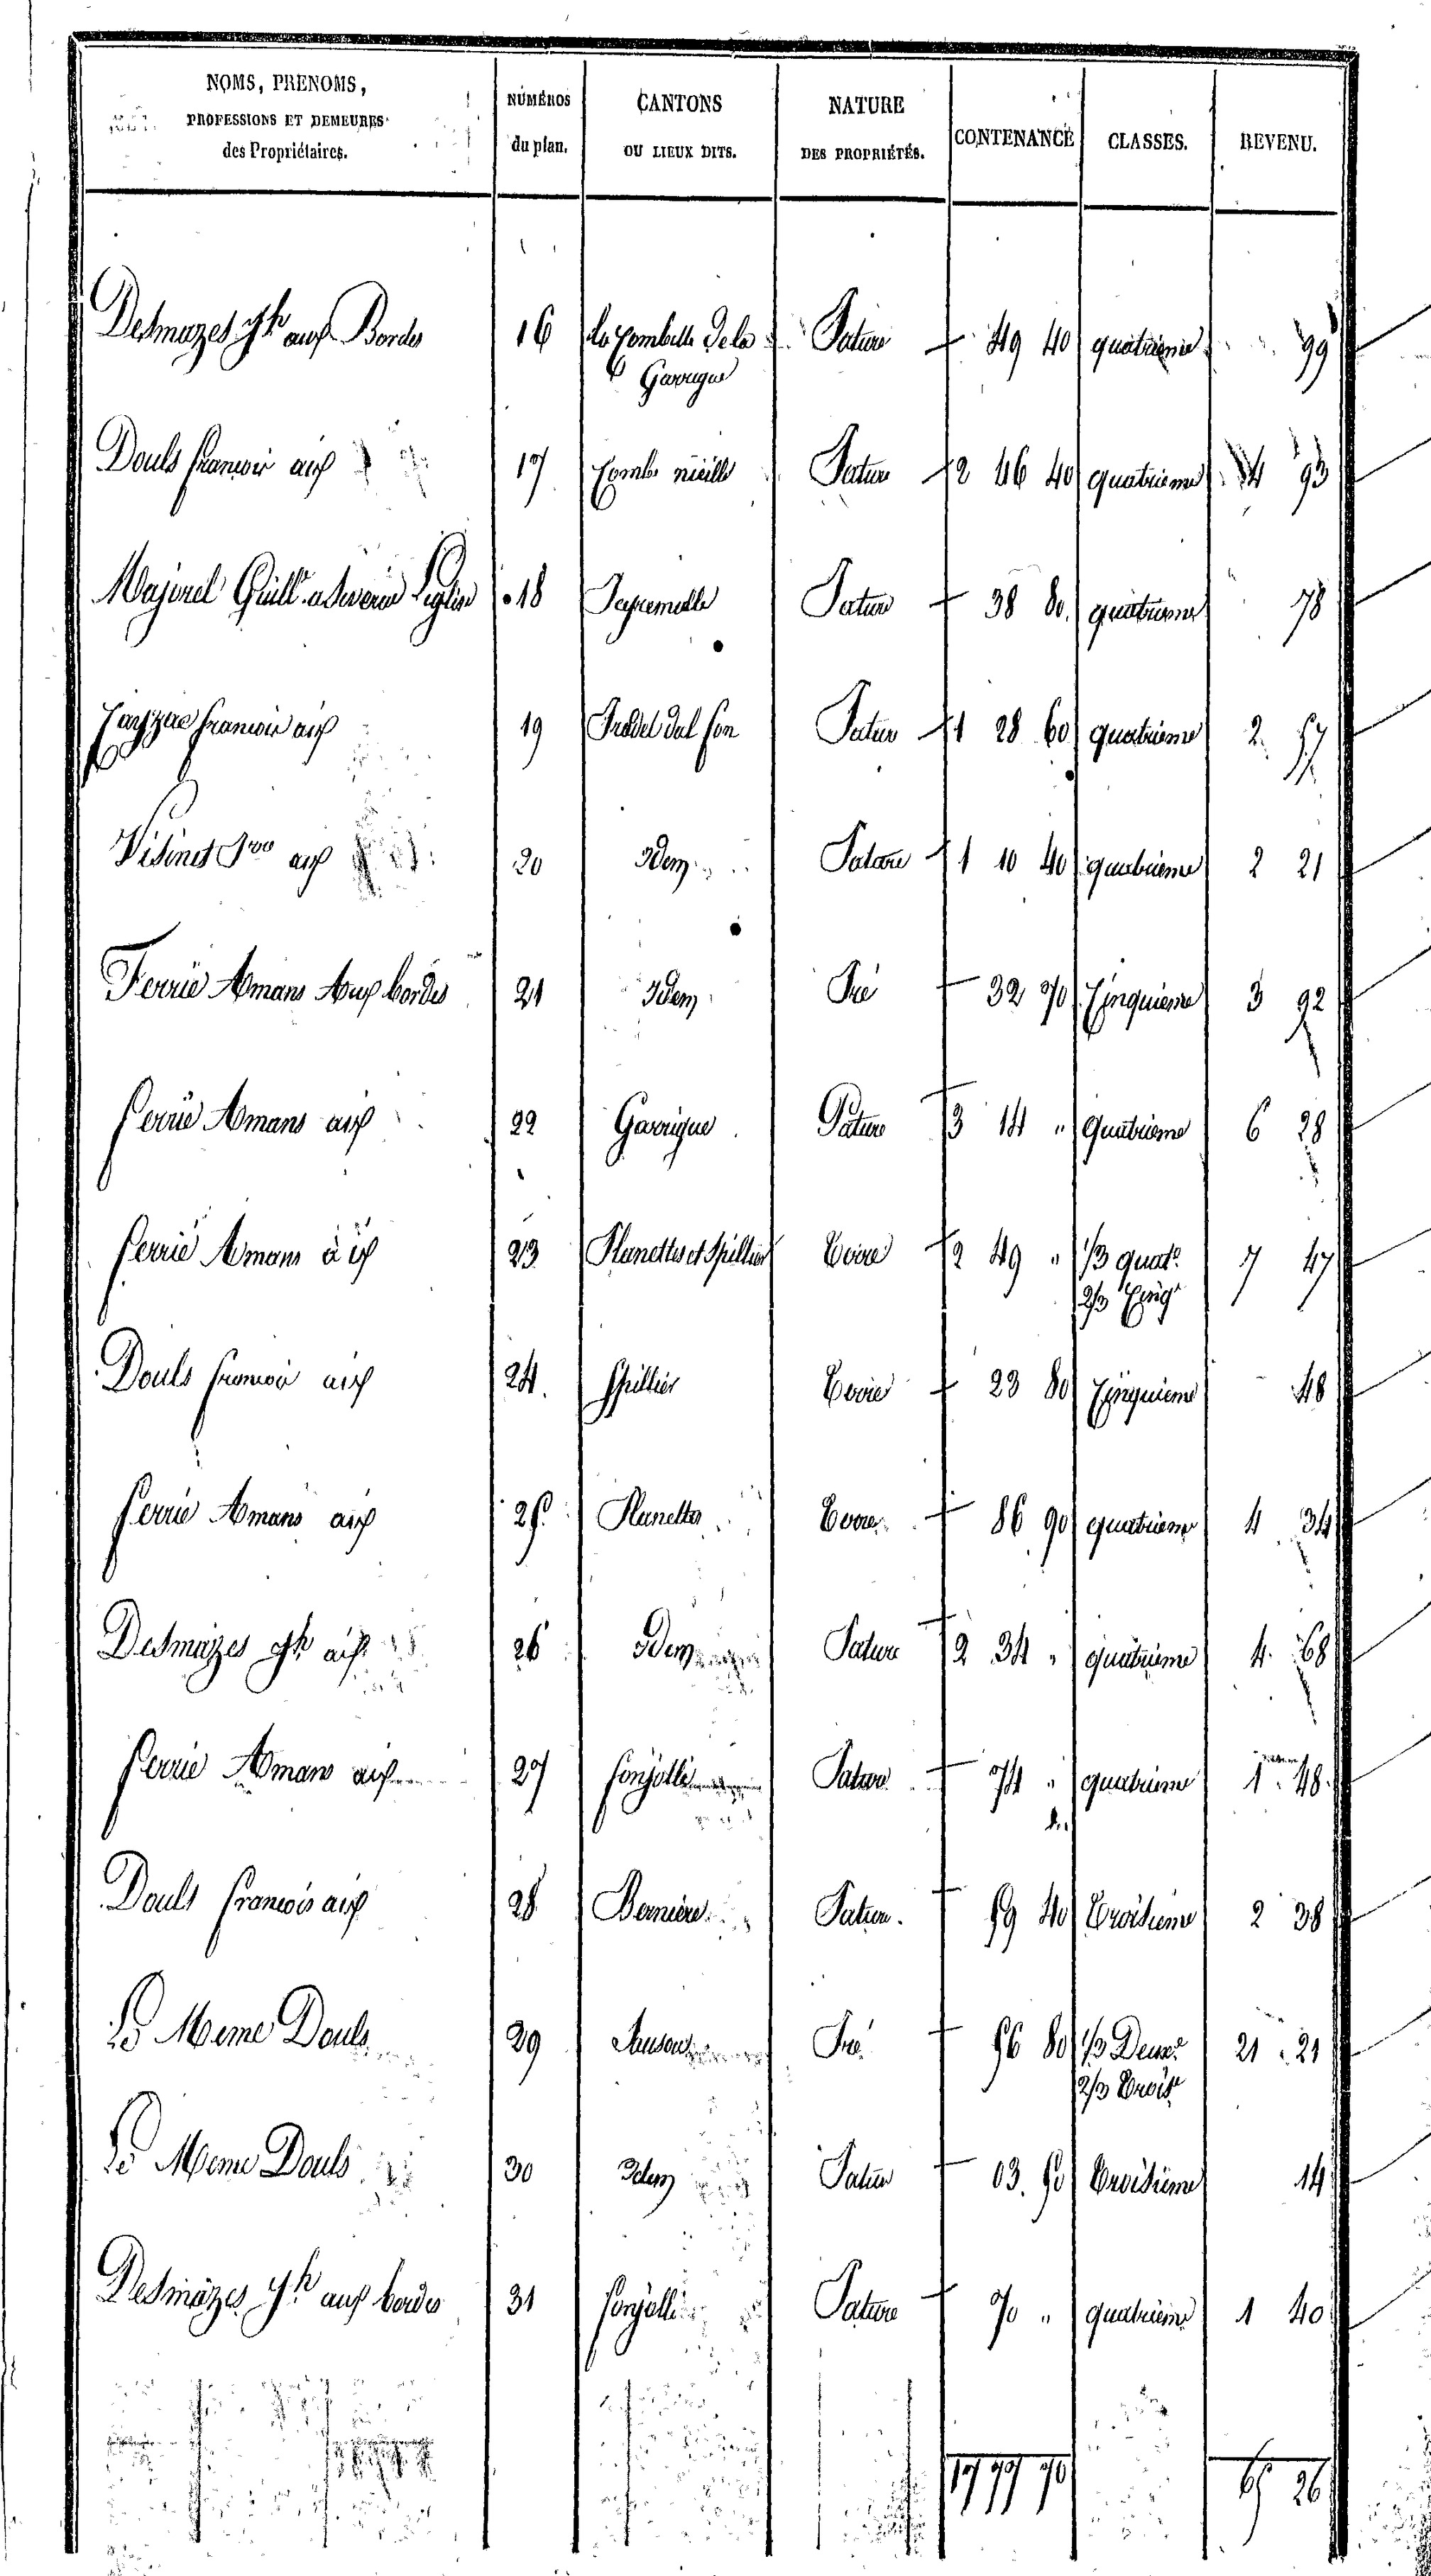 NOMS, PRENOMS,
PROFESSIONS ET DEMEURES
des Propriétaires.
NUMÉROS
du plan.
CANTONS
OU LIEUX DITS.
NATURE
DES PROPRIÉTÉS.
CONTENANCE
CLASSES.
REVENU.
Desmazes Jh aux Bordes 16 la Combelle de la Pature 49 40 quatrieme 99
Garrigue
Douls francois aux 17 Combe nieille Pature 2 46 40 quatrieme 4 93
Majorel Guill. a Leglise 18 Pature 38 80 quatrieme 78
francois aux 19 Pradel dal fon Pature 1 28 60 quatrieme 2 57
aux 20 Idem Pature 1 10 40 quatrieme 2 21
Ferrié Amans Aux bordes 21 Idem Pré 32 70 Cinquieme 3 92
ferrié Amans aux 22 Garrigue Pature 3 14 " Quatrieme 6 28
ferrié Amans aux 23 Planettes et Spillier Terre 2 49 " 1/3 quat.e 7 47
2/3 Cinq.e
Douls francois aux 24 Spillier Terre 23 80 Cinquieme 48
ferrié Amans aux 25 Planettes Terre 86 90 quatrieme 4 34
Desmazes Jh aux 26 Idem Pature 2 34 " quatrieme 4 68
ferrié Amans aux 27 fonjolli Pature 74 " quatrieme 1 48
Douls francois aux 28 Berniere Pature 59 40 Troisieme 2 38
Le Meme Douls 29 Pré 56 80 1/3 Deux.e 21 21
2/3 Trois.e
Le Meme Douls 30 Idem Pature 03 50 Troisieme 14
Desmazes Jh aux bordes 31 fonjolli Pature 70 " quatrieme 1 40
17 77 70 65 26